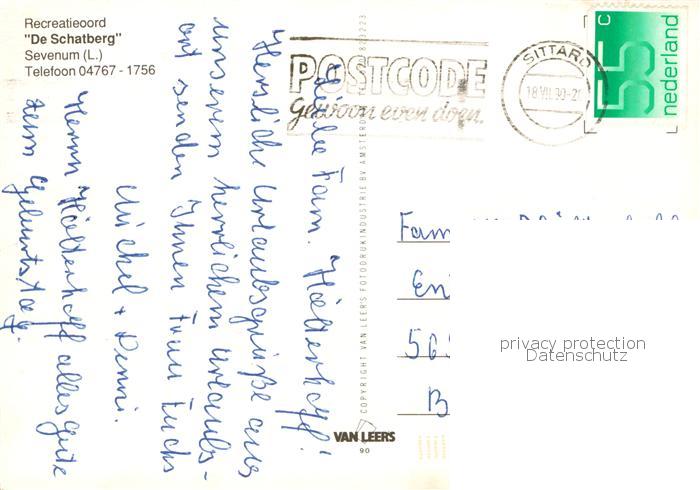 Recreatieoord
"De Schatberg"
Sevenum (L.)
Telefoon 04767 - 1756
POSTCODE
Gewoon even doen.
SITTARD
18.VII.90-21
55 c
nederland
Liebe Fam. Hölterhoff!
Herzliche Urlaubsgrüße aus
unserem herrlichen Urlaubs-
ort senden Ihnen Frau Fuchs
Michel + Renni.
Herrn Hölterhoff alles Gute
zum Geburtstag.
COPYRIGHT VAN LEER'S FOTODRUKINDUSTRIE BV AMSTERDAM
VAN LEER'S
90
Fam
En
565
B
privacy protection
Datenschutz